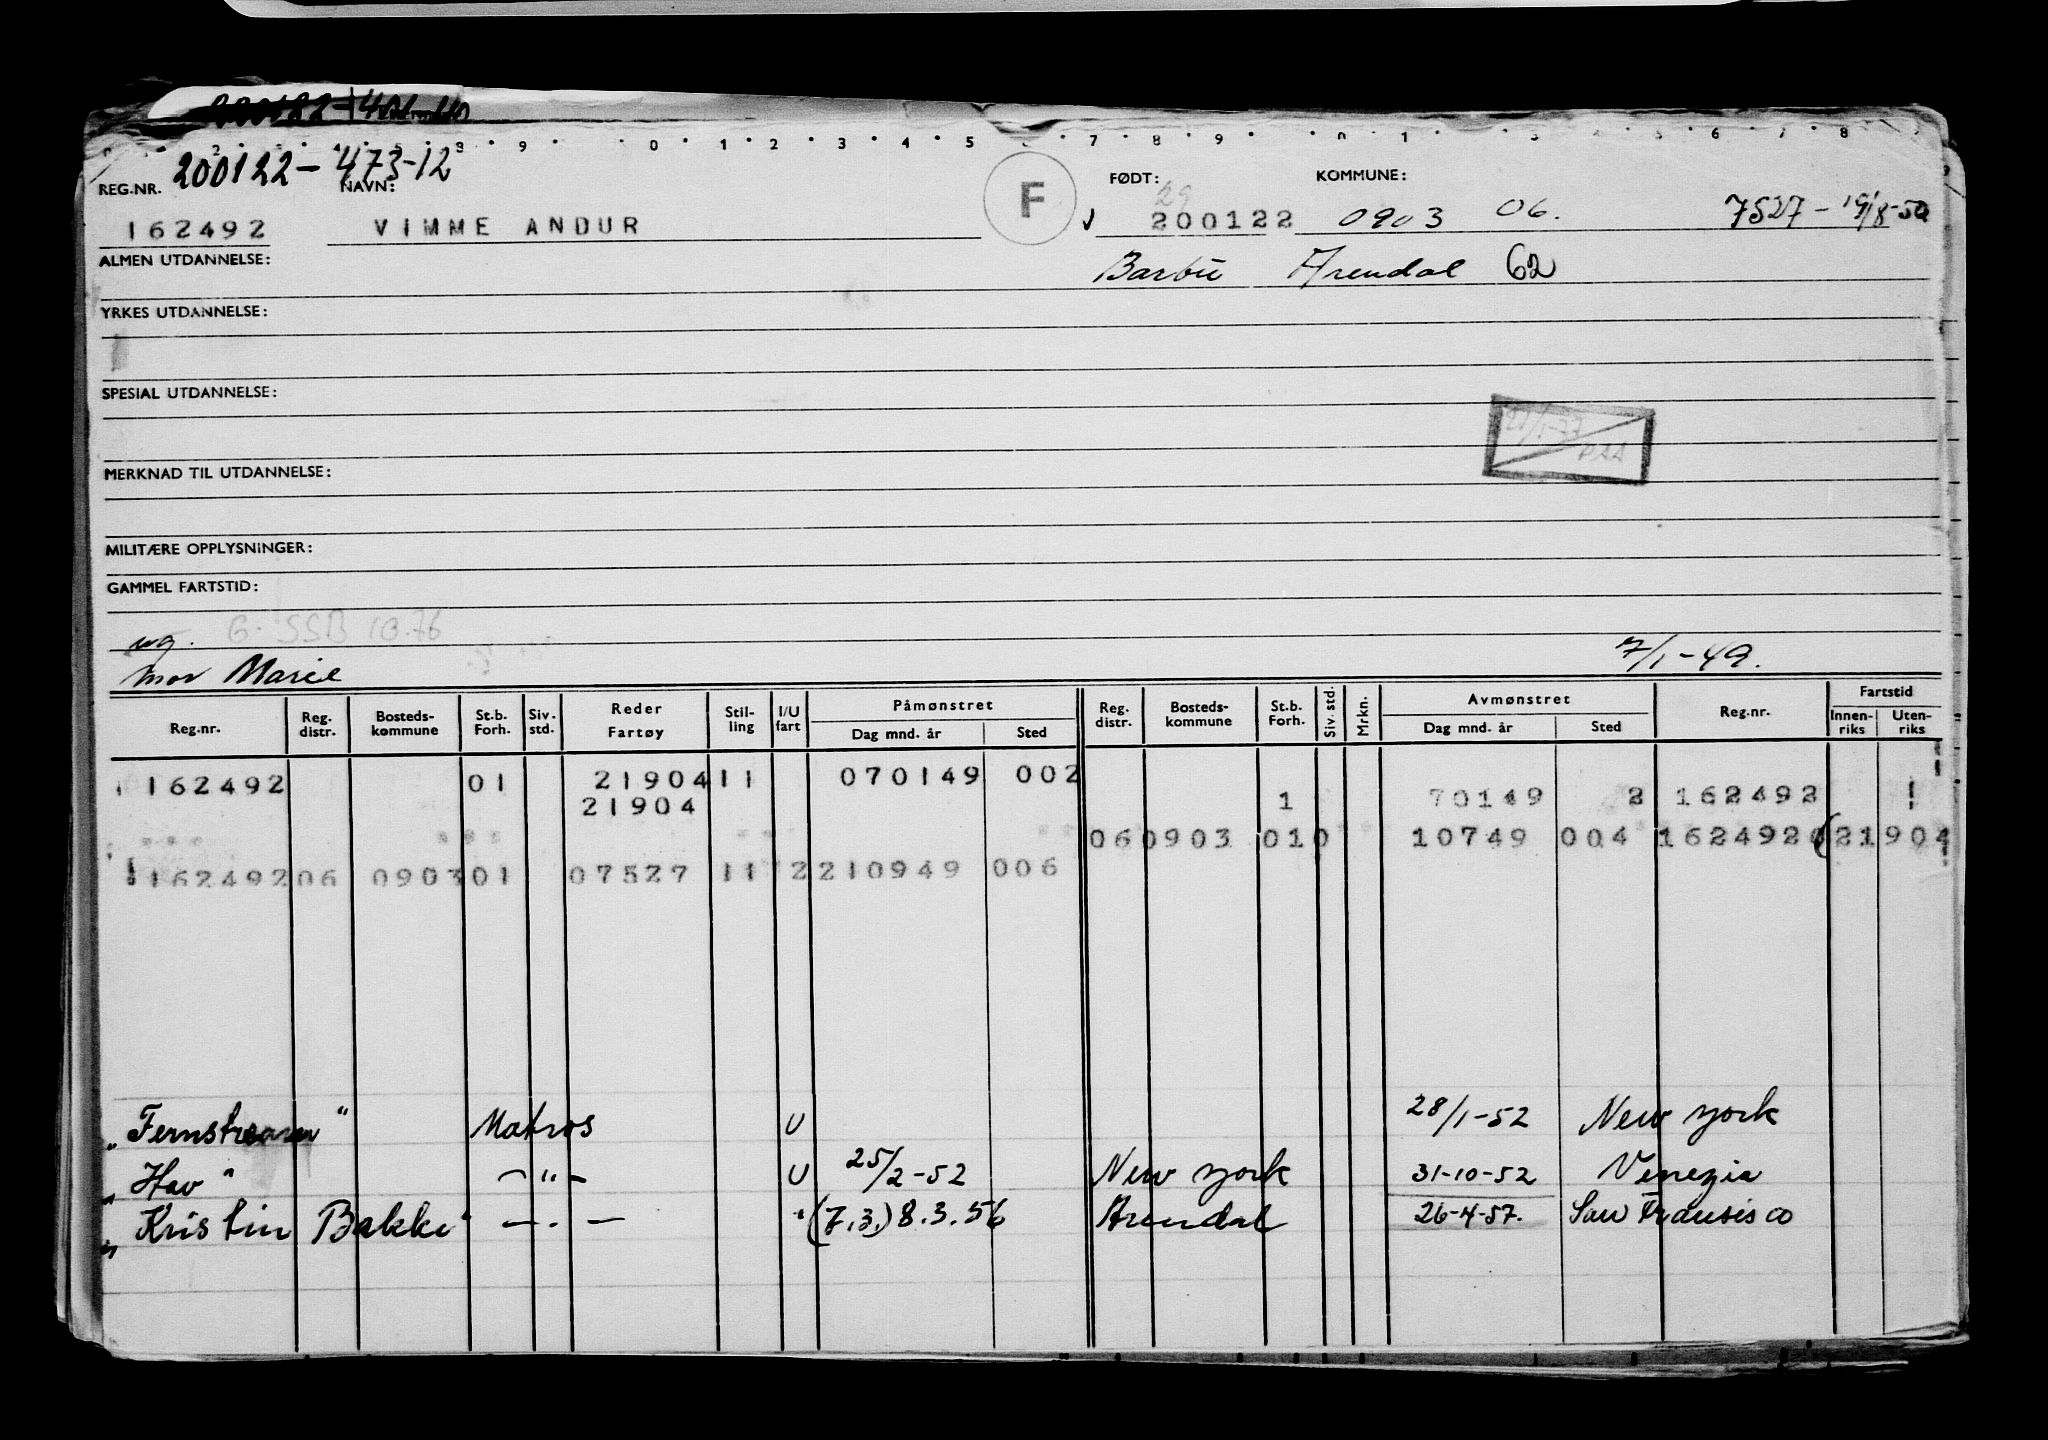 200122-473-12
REG.NR. NAVN: F FØDT: KOMMUNE:
29
162492 VIMME ANDUR 200122 0903 06. 7527-19/8-50
ALMEN UTDANNELSE: Barbu Arendal 62
YRKES UTDANNELSE:
SPESIAL UTDANNELSE:
21/1-77
PAA
MERKNAD TIL UTDANNELSE:
MILITÆRE OPPLYSNINGER:
GAMMEL FARTSTID:
ug. G. SSB 10.76
mor Marie 7/1-49.
Reg.nr. Reg. distr. Bosteds-kommune St.b. Forh. Siv. std. Reder Fartøy Stil-ling I/U fart Påmønstret Dag mnd. år Sted Reg. distr. Bosteds-kommune St.b. Forh. Siv. std. Mrkn. Avmønstret Dag mnd. år Sted Reg.nr. Fartstid Innen-riks Uten-riks
162492 01 21904 11 070149 002
21904 1 70149 2 162492
060903 010 10749 004 162492 (21904
162492 06 0903 01 07527 11 2 210949 006
"Fernstream" Matros U 28/1-52 New York
"Hav" - " - U 25/2-52 New York 31-10-52 Venezia
"Kristin Bakke" - . - " (7.3.) 8.3.56 Arendal 26-4-57. San Fransisco